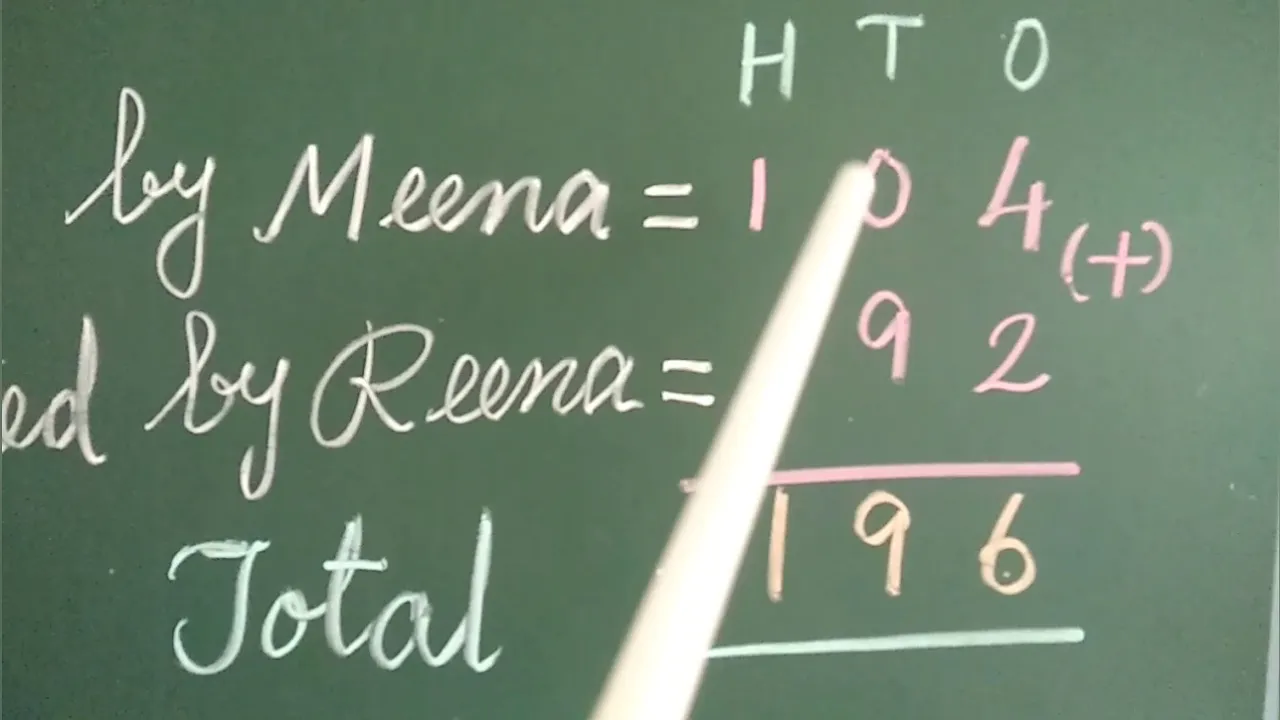 H T O
by Meena = 1 0 4 (+)
ed by Reena = 9 2
Total 1 9 6